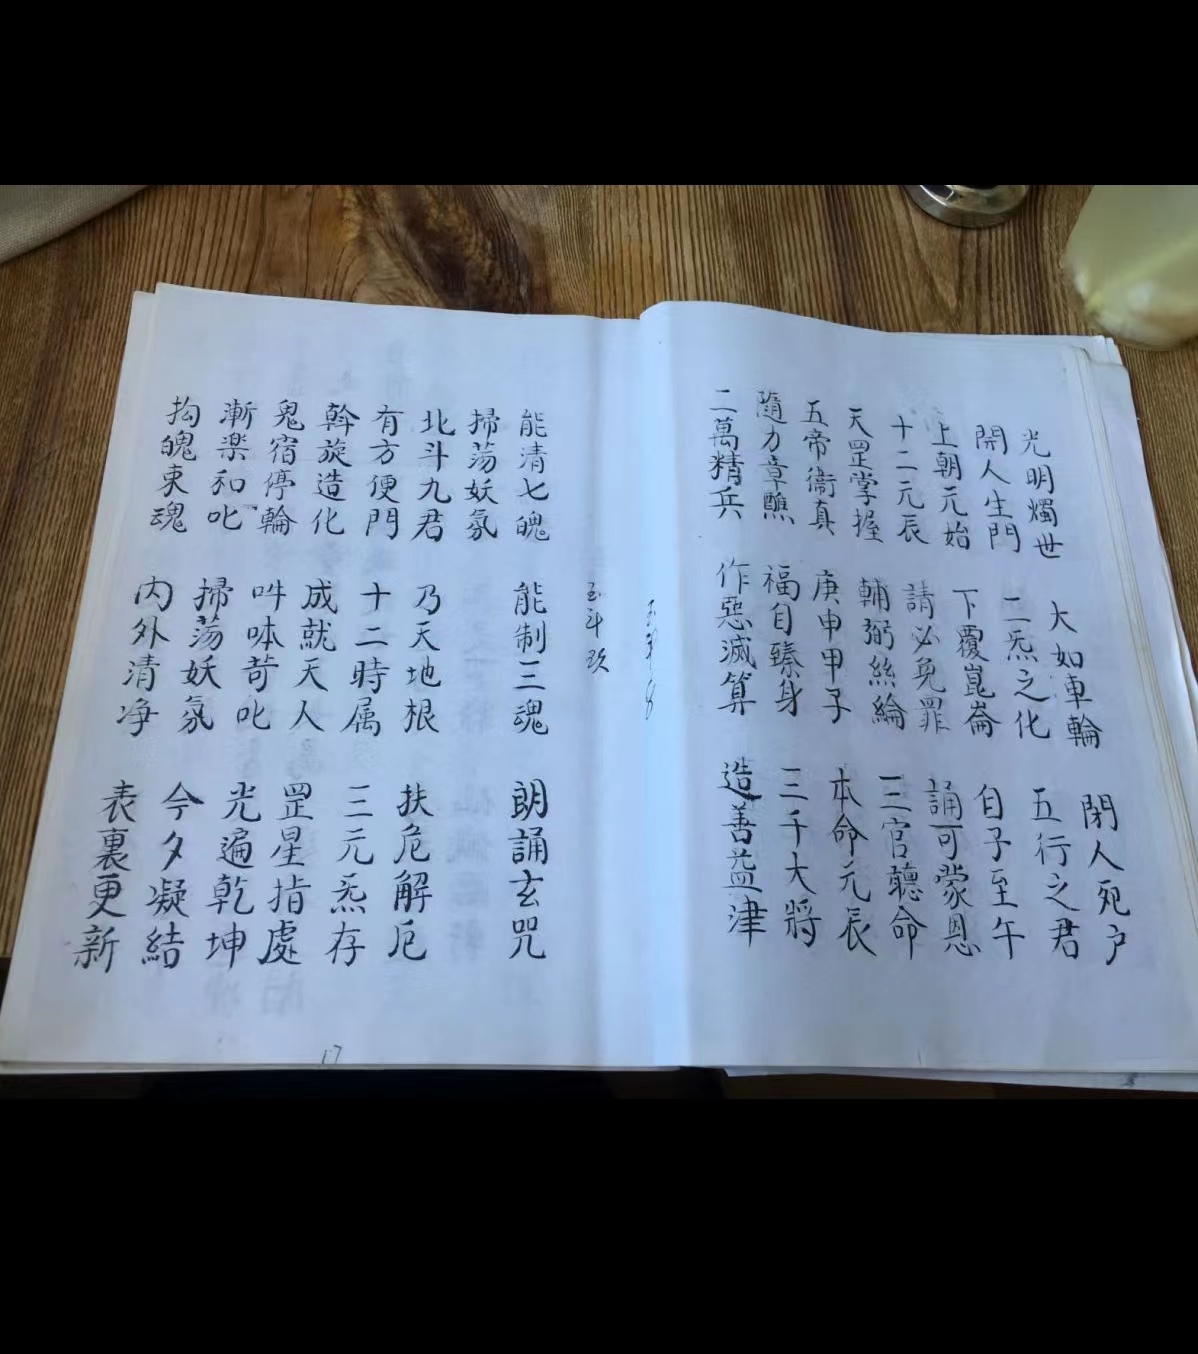 光明燭世 大如車輪 閉人死户
開人生門 二炁之化 五行之君
上朝元始 下覆崑崙 自子至午
十二元辰 請必免罪 誦可蒙恩
天罡掌握 輔弼絲綸 三官聽命
五帝衞真 庚申甲子 本命元辰
隨力章醮 福自臻身 三千大將
二萬精兵 作惡滅算 造善益津
玉斗
能清七魄 能制三魂 朗誦玄咒
掃蕩妖氛
北斗九君 乃天地根 扶危解厄
有方便門 十二時属 三元炁存
斡旋造化 成就天人 罡星指處
鬼宿停輪 吽呠苛叱 光遍乾坤
漸楽和叱 掃蕩妖氛 今夕凝結
拘魄束魂 内外清净 表裏更新
17